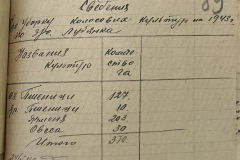 Сведения
89
Про уборку колосовых культур на 1943 г.
по гро. Лубянка
Названия культур
Количество га
Оз. Пшеници 127.
Яр. Пшеници 10.
Ячменя 203.
Овеса 30.
Итого 370.